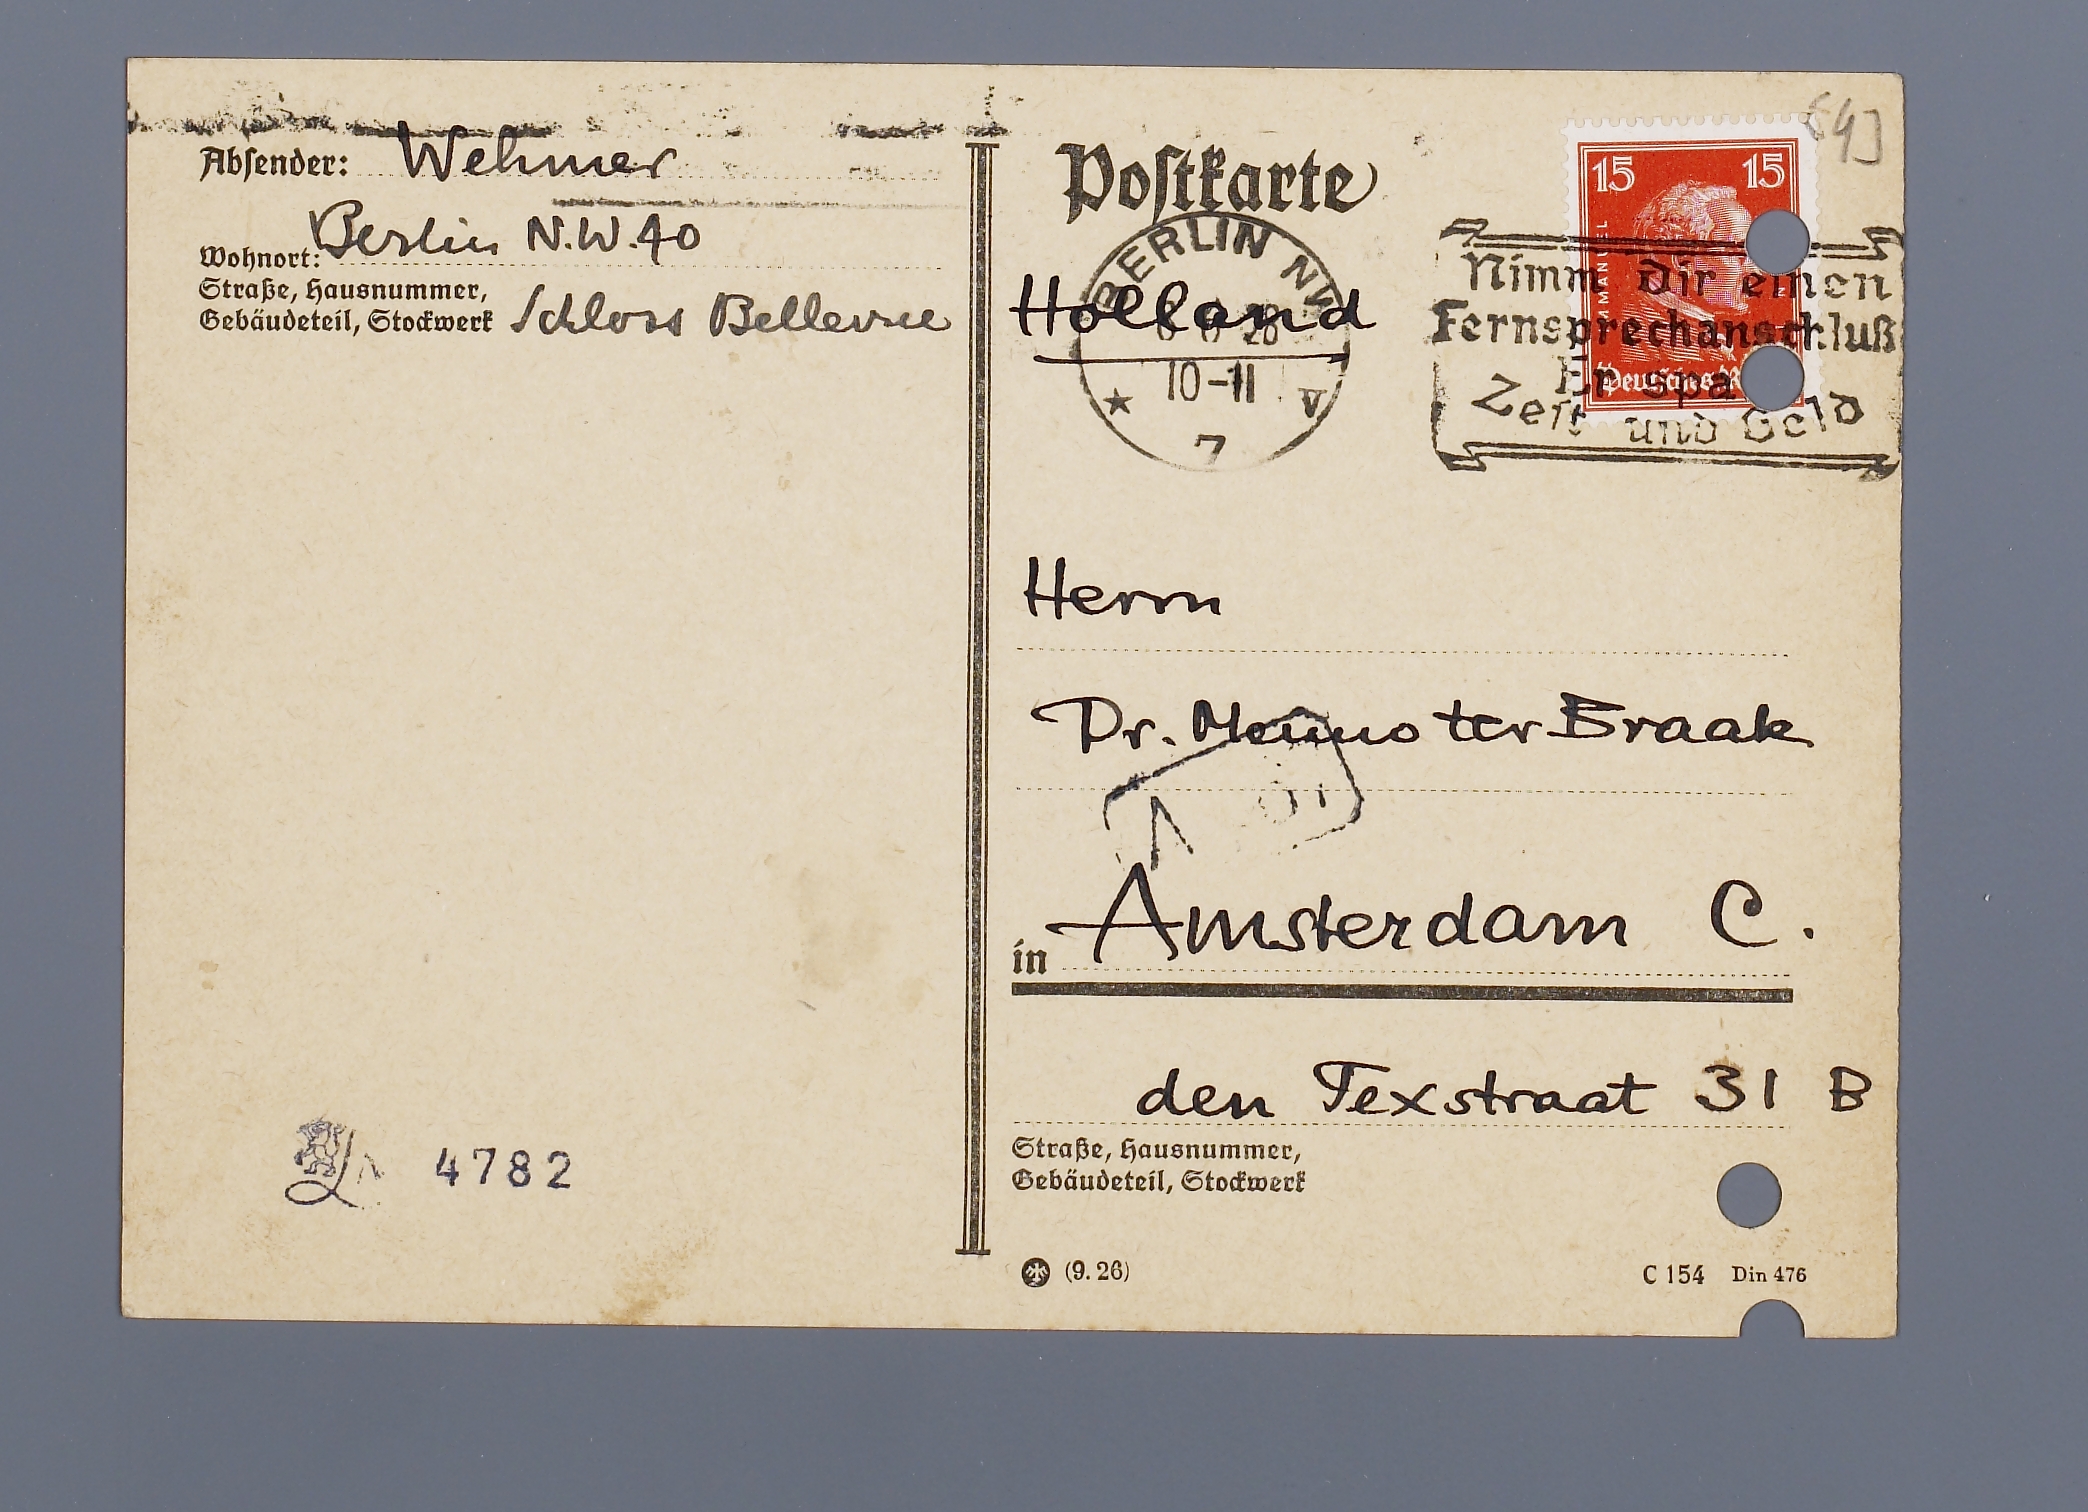 Absender: Wehmer
Wohnort: Berlin N.W.40
Straße, Hausnummer,
Gebäudeteil, Stockwerk Schloss Bellevue
4782
Postkarte
15 15
BERLIN NW
28
10-11 V
7
Nimm Dir einen
Fernsprechanschluß
Er spa
Zeit und Geld
Holland
Herrn
Dr. Menno ter Braak
in Amsterdam C.
den Texstraat 31 B
Straße, Hausnummer,
Gebäudeteil, Stockwerk
(9. 26)
C 154 Din 476